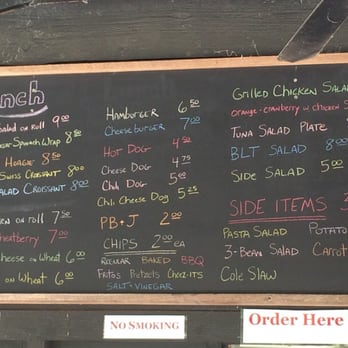 nch
Salad on roll 9.00
Spinach Wrap 8.50
Hoagie 8.50
Swiss Croissant 8.00
Salad Croissant 8.00
en on roll 7.50
heatberry 7.00
Cheese on Wheat 6.00
on Wheat 6.00
Hamburger 6.50
Cheeseburger 7.00
Hot Dog 4.50
Cheese Dog 4.75
Chili Dog 5.00
Chili Cheese Dog 5.25
PB+J 2.00
Chips 2.00 ea
Regular Baked BBQ
Fritos Pretzels Cheez-its
Salt+Vinegar
Grilled Chicken Salad
orange-cranberry w chicken
Tuna Salad Plate
BLT Salad 8.00
Side Salad 5.00
Side Items 3
Pasta Salad Potato
3-Bean Salad Carrot
Cole Slaw
NO SMOKING
Order Here